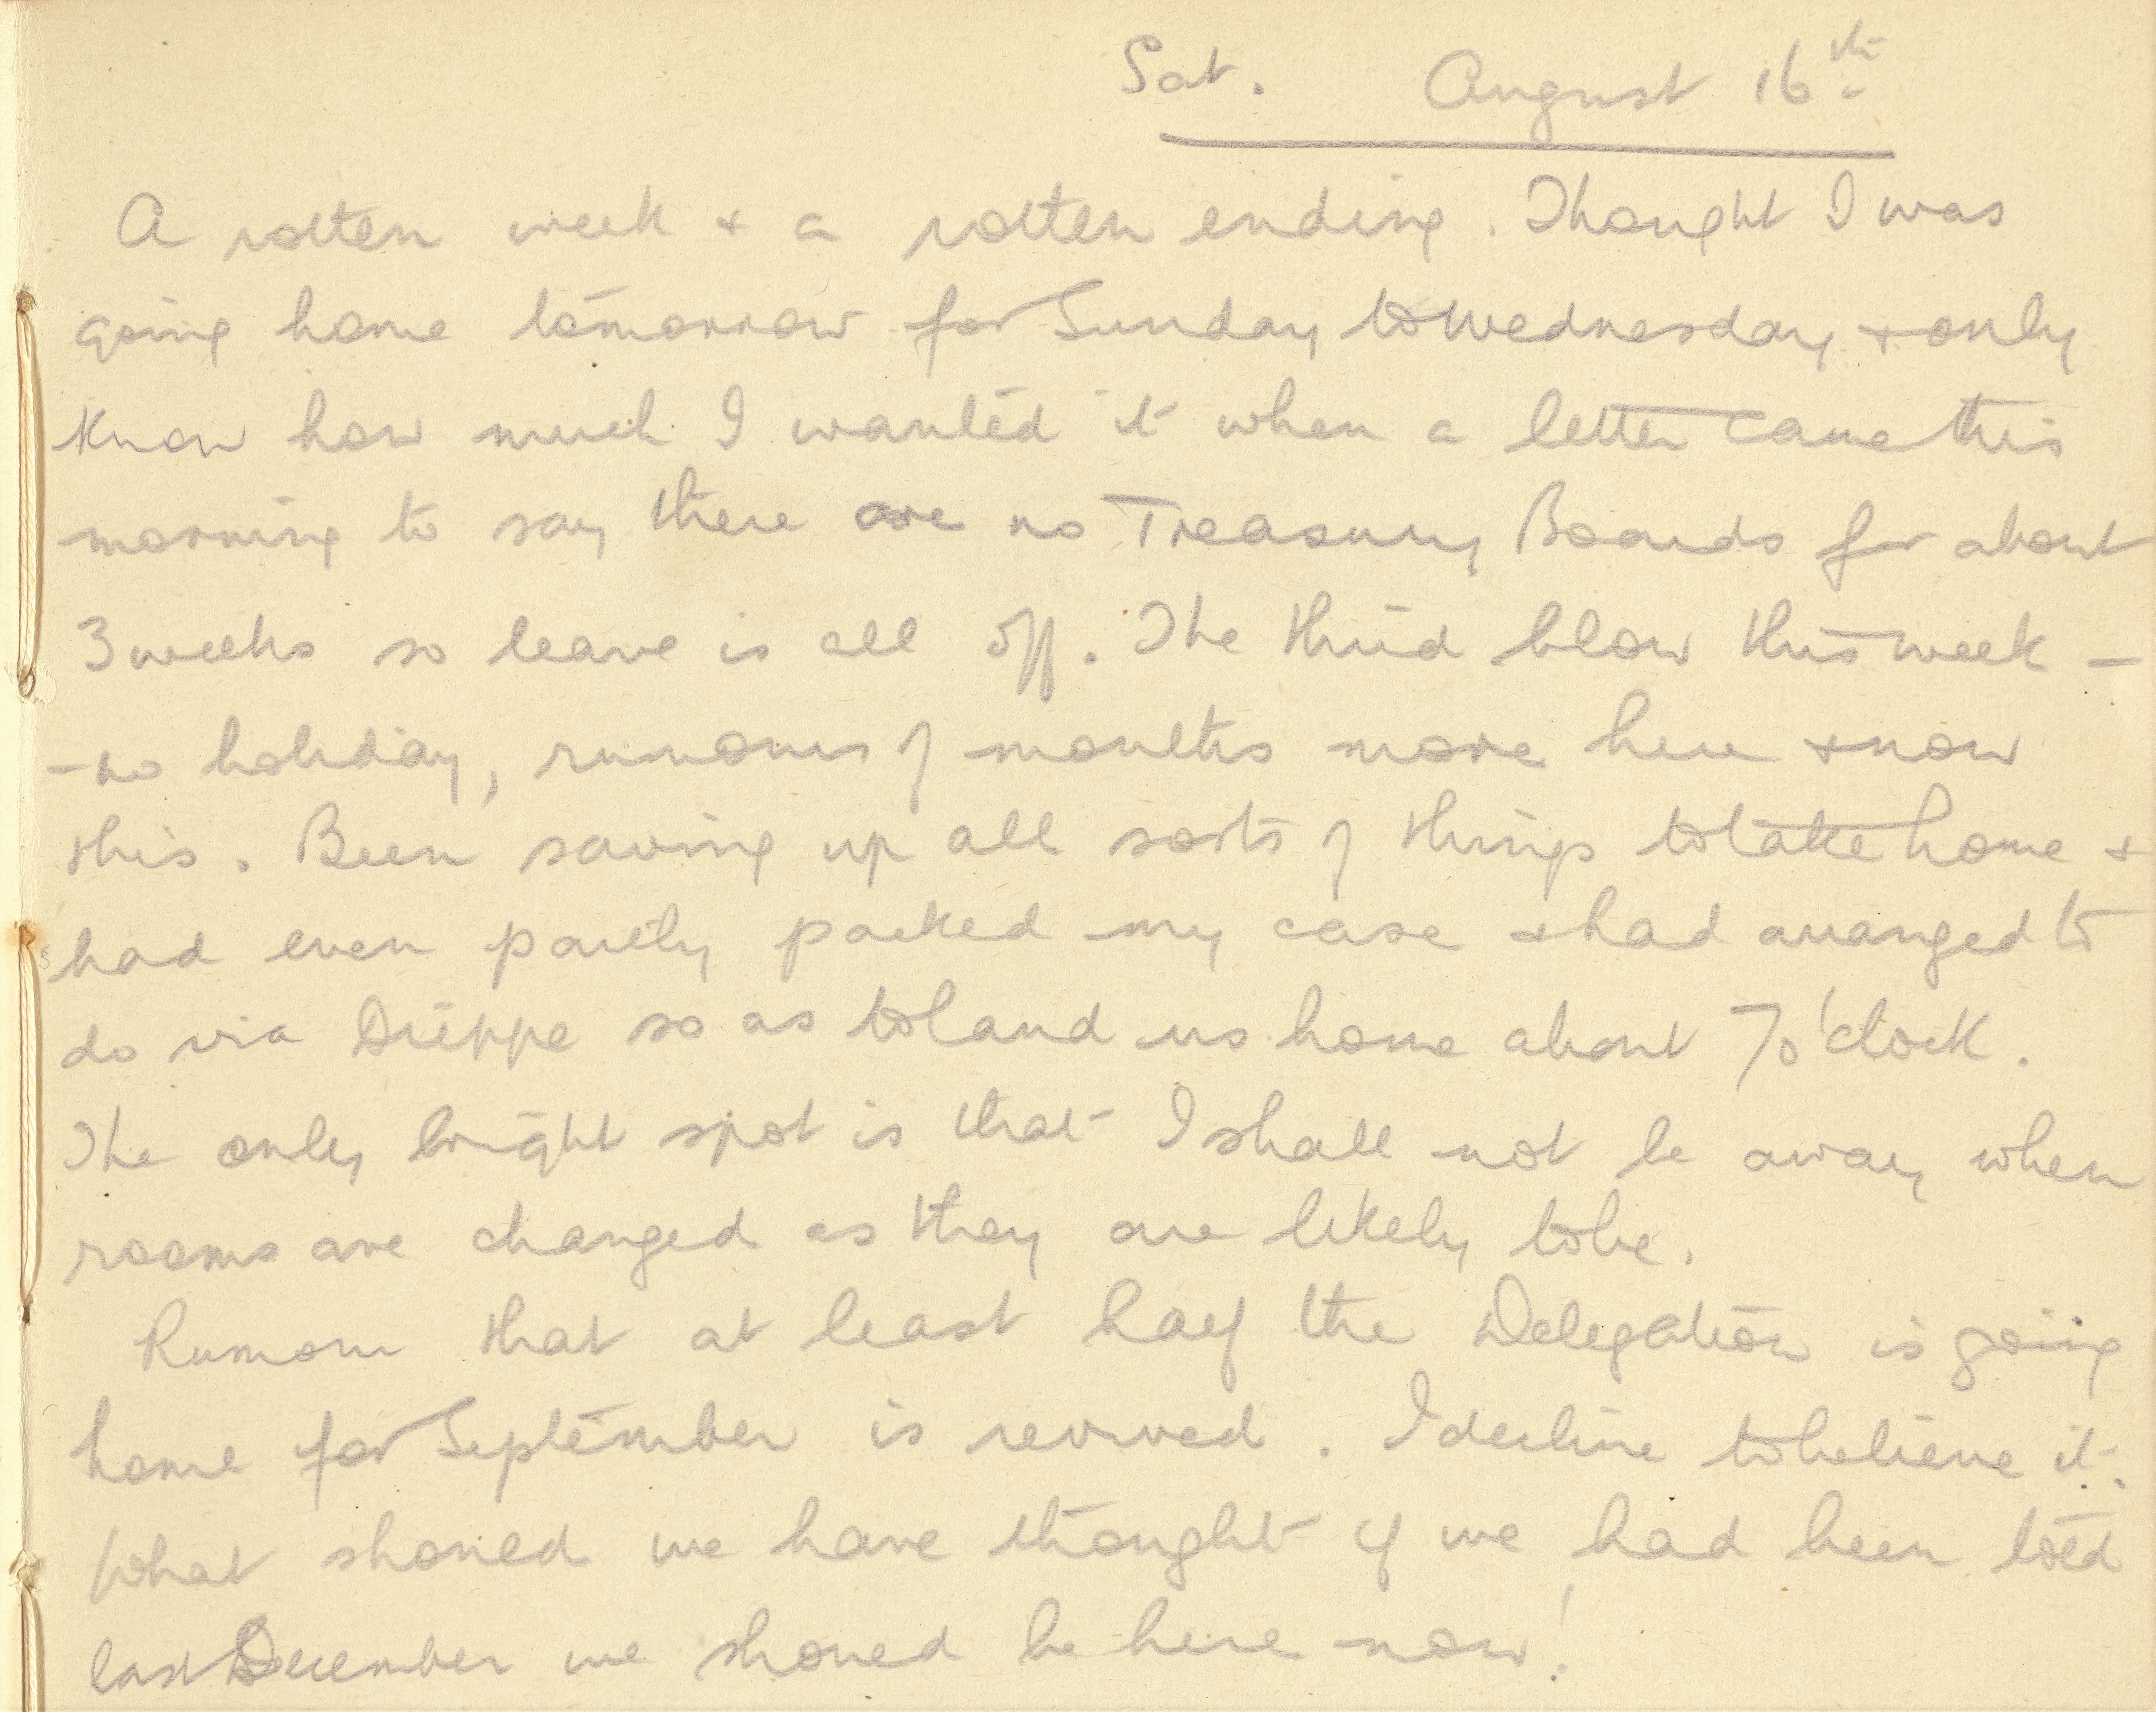 Sat. August 16th
A rotten week + a rotten ending. Thought I was
going home tomorrow for Sunday to Wednesday + only
know how much I wanted it when a letter came this
morning to say there are no Treasury Boards for about
3 weeks so leave is all off. The third blow this week –
– no holiday, rumours of months more here + now
this. Been saving up all sorts of things to take home +
had even partly packed my case + had arranged to
do via Dieppe so as to land us home about 7 o'clock.
The only bright spot is that I shall not be away when
rooms are changed as they are likely to be.
Rumour that at least half the Delegation is going
home for September is revived. I decline to believe it.
What should we have thought if we had been told
last December we should be here now!